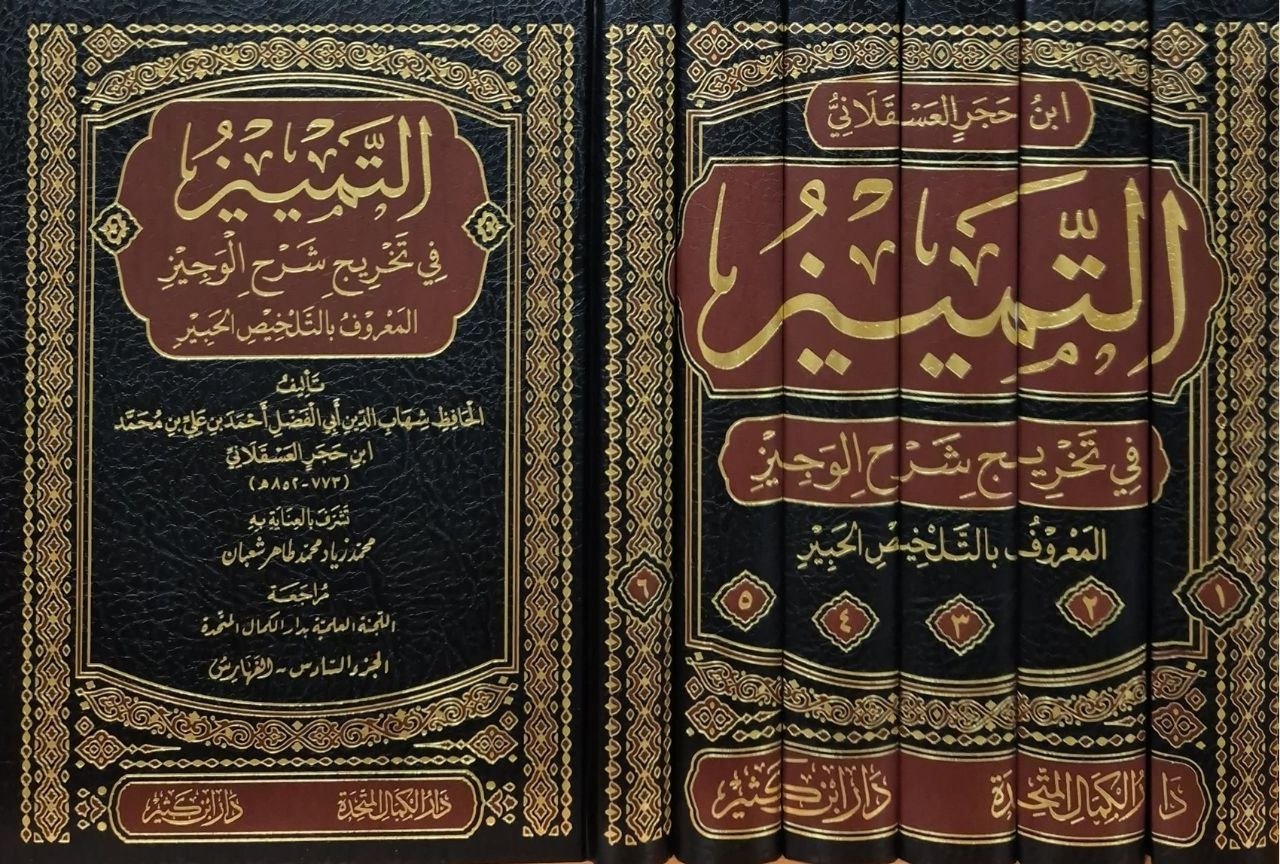 التَّمْيِيزُ
فِي تَخْرِيجِ شَرْحِ الْوَجِيزِ
المَعْرُوفُ بِالتَّلْخِيصِ الحَبِيْرِ
تَأْلِيفُ
الحَافِظِ شِهَابِ الدِّينِ أَبِي الْفَضْلِ أَحْمَدَ بنِ عَلِيِّ بنِ مُحَمَّد
ابنِ حَجَرٍ العَسْقَلَانِيِّ
(٧٧٣-٨٥٢ه)
تَشَرَّفَ بِالعِنَايَةِ بِهِ
محمد زياد محمد طاهر شعبان
مُرَاجَعَة
اللجنة العلمية بدار الكمال المتحدة
الجزء السادس - الفَهَارِسُ
دَارُ الكَمَالِ المُتَّحِدَة
دَارُ ابْنِ كَثِيرٍ
ابنُ حَجَرٍ العَسْقَلَانِيُّ
التَّمْيِيزُ
فِي تَخْرِيجِ شَرْحِ الوَجِيزِ
المَعْرُوفُ بِالتَّلْخِيصِ الحَبِيْرِ
١ ٢ ٣ ٤ ٥ ٦
دَارُ الكَمَالِ المُتَّحِدَة
دَارُ ابْنِ كَثِيرٍ